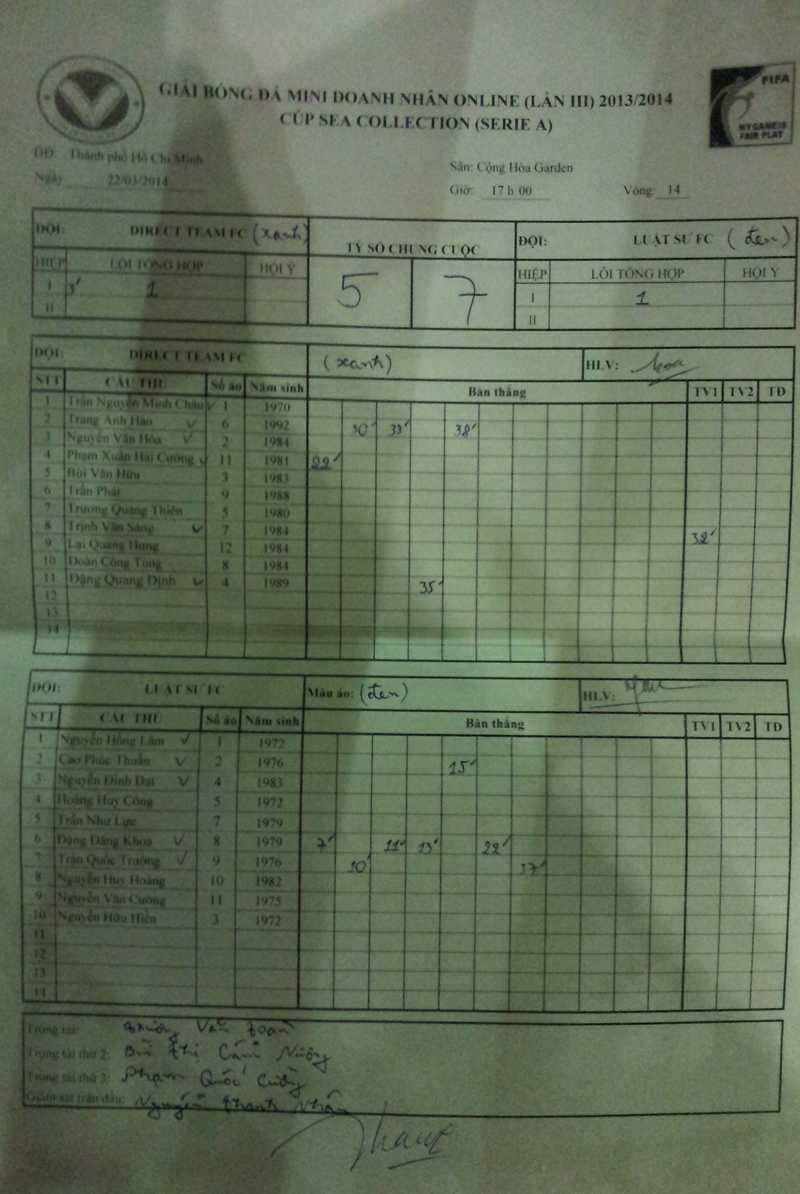 GIẢI BÓNG ĐÁ MINI DOANH NHÂN ONLINE (LẦN III) 2013/2014
CÚP SEA COLLECTION (SERIE A)
FIFA
MY GAME IS
FAIR PLAY
ĐĐ Thành phố Hồ Chí Minh
Sân: Cộng Hòa Garden
Ngày 22/03/2014 Giờ: 17 h 00 Vòng: 14
ĐỘI: DIRECT TEAM FC (xanh) TỶ SỐ CHUNG CUỘC ĐỘI: LUẬT SƯ FC (đen)
HIỆP LỖI TỔNG HỢP HỘI Ý 5 7 HIỆP LỖI TỔNG HỢP HỘI Ý
I 3' 1 I 1
II II
ĐỘI: DIRECT TEAM FC (xanh) HLV:
STT CẦU THỦ Số áo Năm sinh Bàn thắng TV1 TV2 TĐ
1 Trần Nguyễn Minh Châu ✓ 1 1970
2 Trang Anh Hào ✓ 6 1992 30' 33' 38'
3 Nguyễn Văn Hòa ✓ 2 1984
4 Phạm Xuân Hải Cường ✓ 11 1981 22'
5 Bùi Văn Hữu 3 1983
6 Trần Phát 9 1988
7 Trương Quang Thiên 5 1980
8 Trịnh Văn Sang ✓ 7 1984 32'
9 Lại Quang Hưng 12 1984
10 Đoàn Công Tùng 8 1984
11 Đặng Quang Định ✓ 4 1989 35'
12
13
14
ĐỘI: LUẬT SƯ FC Màu áo: (đen) HLV:
STT CẦU THỦ Số áo Năm sinh Bàn thắng TV1 TV2 TĐ
1 Nguyễn Hồng Lâm ✓ 1 1972
2 Cao Phúc Thuần ✓ 2 1976 15'
3 Nguyễn Đình Đạt ✓ 4 1983
4 Hoàng Huy Công 5 1972
5 Trần Như Lực 7 1979
6 Đặng Đăng Khoa ✓ 8 1979 7' 11' 13' 22'
7 Trần Quốc Trưởng ✓ 9 1976 10' 37'
8 Nguyễn Huy Hoàng 10 1982
9 Nguyễn Văn Cường 11 1975
10 Nguyễn Hữu Hiền 3 1972
11
12
13
14
Trọng tài: Văn Toàn
Trọng tài thứ 2: Bùi Thị Cẩm
Trọng tài thứ 3: Phạm Quốc Cường
Giám sát trận đấu: Nguyễn Thanh Nhân